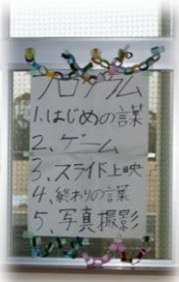 プログラム
1.はじめの言葉
2、ゲーム
3、スライド上映
4、終わりの言葉
5、写真撮影